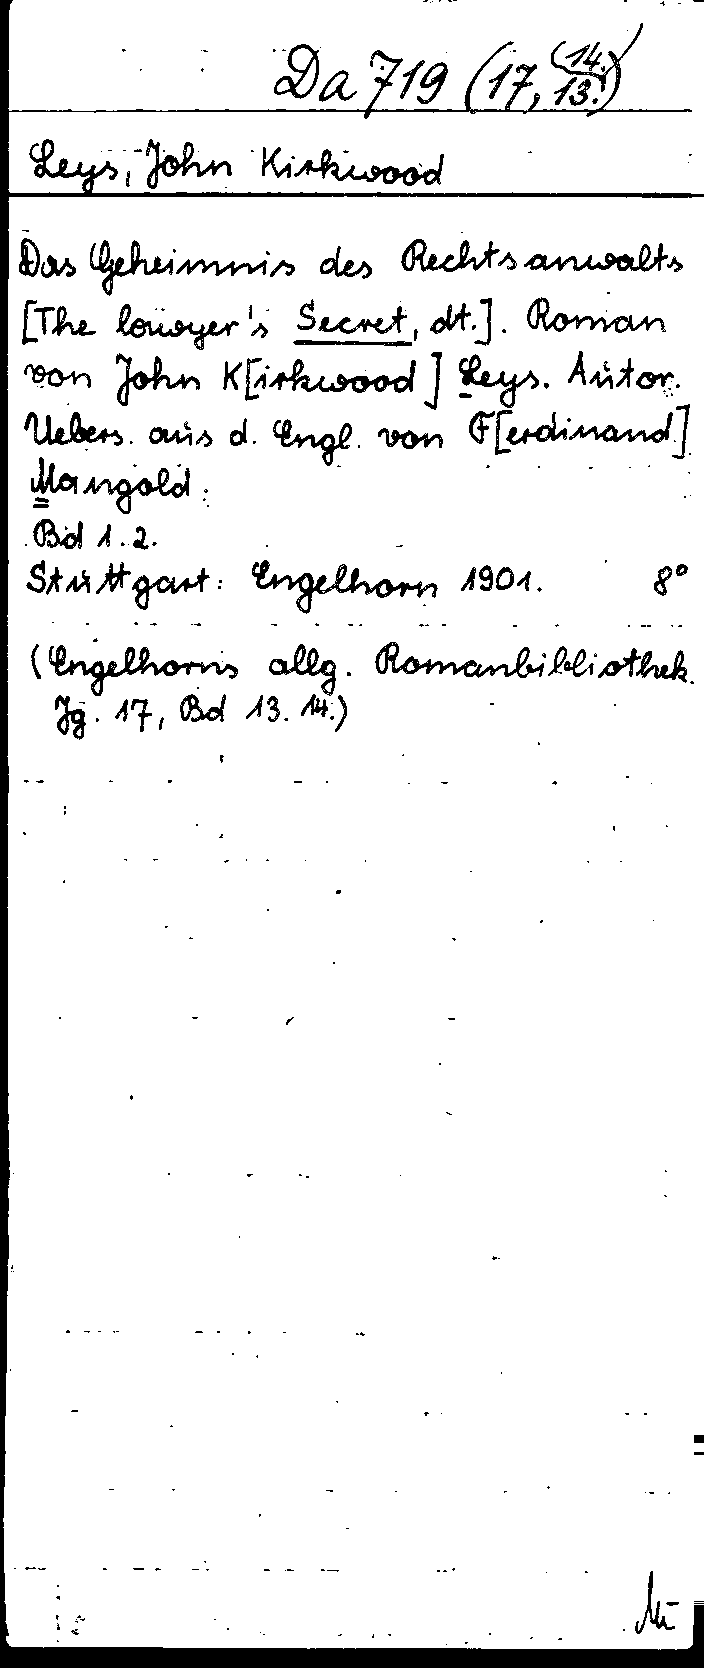 Da 719 (17, 13.(14.)
Leys, John Kirkwood
Das Geheimnis des Rechtsanwalts
[The lawyer's Secret, dt.]. Roman
von John K[irkwood] Leys. Autor.
Uebers. aus d. Engl. von F[erdinand]
Mangold.
Bd 1.2.
Stuttgart: Engelhorn 1901. 8°
(Engelhorns allg. Romanbibliothek.
Jg. 17, Bd 13. 14.)